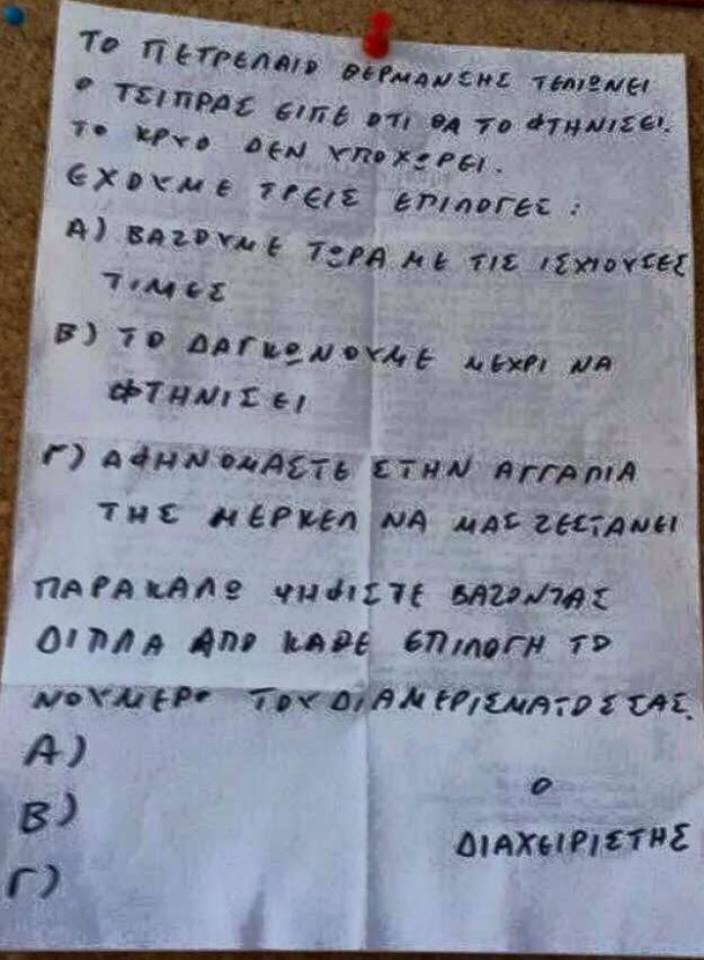 ΤΟ ΠΕΤΡΕΛΑΙΟ ΘΕΡΜΑΝΣΗΣ ΤΕΛΙΩΝΕΙ
Ο ΤΣΙΠΡΑΣ ΕΙΠΕ ΟΤΙ ΘΑ ΤΟ ΦΤΗΝΙΣΕΙ.
ΤΟ ΚΡΥΟ ΔΕΝ ΥΠΟΧΩΡΕΙ.
ΕΧΟΥΜΕ ΤΡΕΙΣ ΕΠΙΛΟΓΕΣ :
Α) ΒΑΖΟΥΜΕ ΤΩΡΑ ΜΕ ΤΙΣ ΙΣΧΙΟΥΣΕΣ
ΤΙΜΕΣ
Β) ΤΟ ΔΑΓΚΩΝΟΥΜΕ ΜΕΧΡΙ ΝΑ
ΦΤΗΝΙΣΕΙ
Γ) ΑΦΗΝΟΜΑΣΤΕ ΣΤΗΝ ΑΓΓΑΛΙΑ
ΤΗΣ ΜΕΡΚΕΛ ΝΑ ΜΑΣ ΖΕΣΤΑΝΕΙ
ΠΑΡΑΚΑΛΩ ΨΗΦΙΣΤΕ ΒΑΖΟΝΤΑΣ
ΔΙΠΛΑ ΑΠΟ ΚΑΘΕ ΕΠΙΛΟΓΗ ΤΟ
ΝΟΥΜΕΡΟ ΤΟΥ ΔΙΑΜΕΡΙΣΜΑΤΟΣ ΣΑΣ.
Α)
Β)
Γ)
Ο
ΔΙΑΧΕΙΡΙΣΤΗΣ